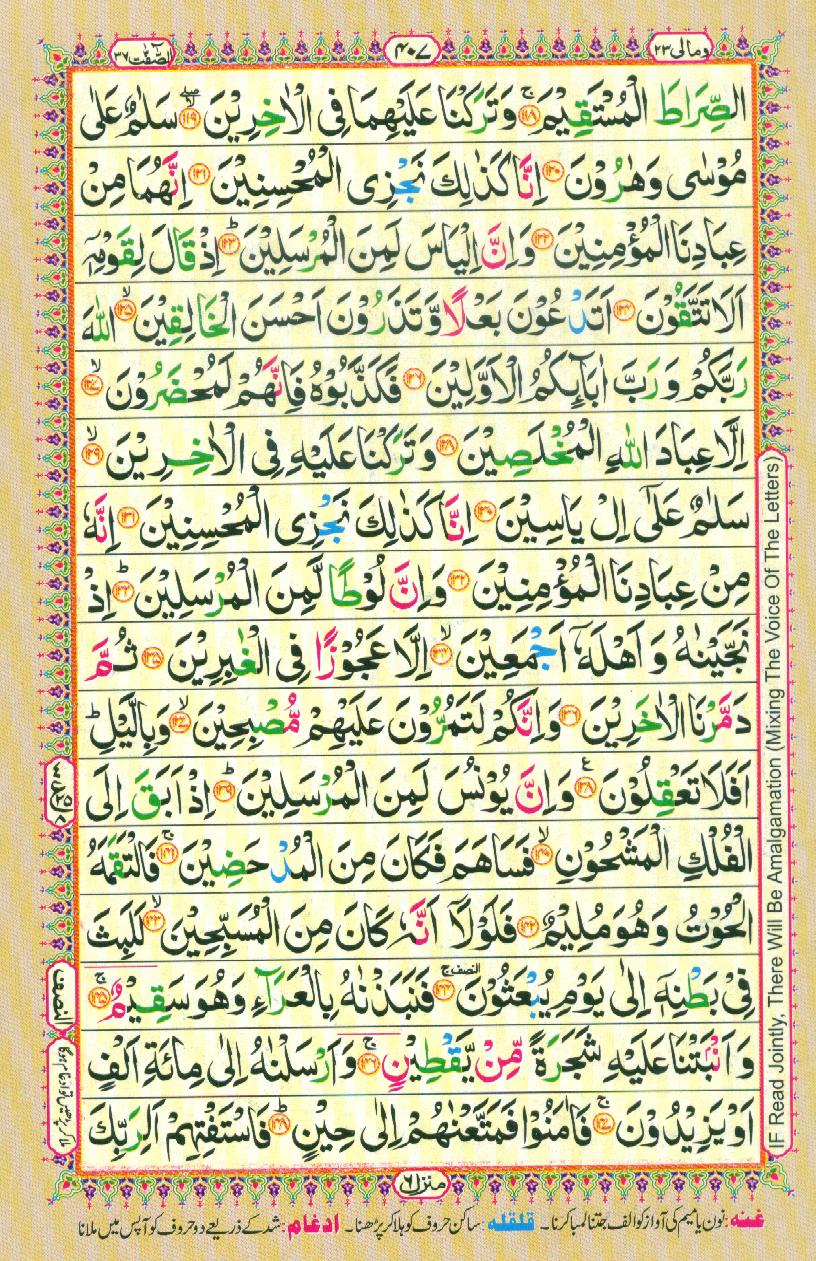 ومالی ۲۳
۴۰۷
الصّٰفّٰت ۳۷
الصِّرَاطَ الْمُسْتَقِيْمَ ۚ‏﴿۱۱۸﴾ وَتَرَكْنَا عَلَيْهِمَا فِى الْاٰخِرِيْنَ ۙ﴿۱۱۹﴾ سَلٰمٌ عَلٰى
مُوْسٰى وَهٰرُوْنَ ﴿۱۲۰﴾ اِنَّا كَذٰلِكَ نَجْزِى الْمُحْسِنِيْنَ ﴿۱۲۱﴾ اِنَّهُمَا مِنْ
عِبَادِنَا الْمُؤْمِنِيْنَ ﴿۱۲۲﴾ وَاِنَّ اِلْيَاسَ لَمِنَ الْمُرْسَلِيْنَ ؕ﴿۱۲۳﴾ اِذْ قَالَ لِقَوْمِهٖۤ
اَلَا تَتَّقُوْنَ ﴿۱۲۴﴾ اَتَدْعُوْنَ بَعْلًا وَّتَذَرُوْنَ اَحْسَنَ الْخَالِقِيْنَ ۙ﴿۱۲۵﴾ اللّٰهَ
رَبَّكُمْ وَرَبَّ اٰبَآئِكُمُ الْاَوَّلِيْنَ ﴿۱۲۶﴾ فَكَذَّبُوْهُ فَاِنَّهُمْ لَمُحْضَرُوْنَ ۙ﴿۱۲۷﴾
اِلَّا عِبَادَ اللّٰهِ الْمُخْلَصِيْنَ ﴿۱۲۸﴾ وَتَرَكْنَا عَلَيْهِ فِى الْاٰخِرِيْنَ ۙ﴿۱۲۹﴾
سَلٰمٌ عَلٰٓى اِلْ يَاسِيْنَ ﴿۱۳۰﴾ اِنَّا كَذٰلِكَ نَجْزِى الْمُحْسِنِيْنَ ﴿۱۳۱﴾ اِنَّهٗ
مِنْ عِبَادِنَا الْمُؤْمِنِيْنَ ﴿۱۳۲﴾ وَاِنَّ لُوْطًا لَّمِنَ الْمُرْسَلِيْنَ ؕ﴿۱۳۳﴾ اِذْ
نَجَّيْنٰهُ وَاَهْلَهٗۤ اَجْمَعِيْنَ ۙ﴿۱۳۴﴾ اِلَّا عَجُوْزًا فِى الْغٰبِرِيْنَ ﴿۱۳۵﴾ ثُمَّ
دَمَّرْنَا الْاٰخَرِيْنَ ﴿۱۳۶﴾ وَاِنَّكُمْ لَتَمُرُّوْنَ عَلَيْهِمْ مُّصْبِحِيْنَ ۙ﴿۱۳۷﴾ وَبِالَّيْلِ ؕ
اَفَلَا تَعْقِلُوْنَ ﴿۱۳۸﴾ ع وَاِنَّ يُوْنُسَ لَمِنَ الْمُرْسَلِيْنَ ؕ﴿۱۳۹﴾ اِذْ اَبَقَ اِلَى
الْفُلْكِ الْمَشْحُوْنِ ۙ﴿۱۴۰﴾ فَسَاهَمَ فَكَانَ مِنَ الْمُدْحَضِيْنَ ۚ﴿۱۴۱﴾ فَالْتَقَمَهُ
الْحُوْتُ وَهُوَ مُلِيْمٌ ﴿۱۴۲﴾ فَلَوْلَاۤ اَنَّهٗ كَانَ مِنَ الْمُسَبِّحِيْنَ ۙ﴿۱۴۳﴾ لَلَبِثَ
فِىْ بَطْنِهٖۤ اِلٰى يَوْمِ يُبْعَثُوْنَ النصف ۚ﴿۱۴۴﴾ فَنَبَذْنٰهُ بِالْعَرَآءِ وَهُوَ سَقِيْمٌ ۚ﴿۱۴۵﴾
وَاَنْۢبَتْنَا عَلَيْهِ شَجَرَةً مِّنْ يَّقْطِيْنٍ ۚ﴿۱۴۶﴾ وَاَرْسَلْنٰهُ اِلٰى مِائَةِ اَلْفٍ
اَوْ يَزِيْدُوْنَ ۚ﴿۱۴۷﴾ فَاٰمَنُوْا فَمَتَّعْنٰهُمْ اِلٰى حِيْنٍ ؕ﴿۱۴۸﴾ فَاسْتَفْتِهِمْ اَلِرَبِّكَ
IF Read Jointly, There Will Be Amalgamation (Mixing The Voice Of The Letters)
النصف
ملا کر پڑھیں تو ادغام ہوگا
منزل ۶
غنه: نون یا میم کی آواز کو الف جتنا لمبا کرنا۔ قلقله: ساکن حروف کو ہلا کر پڑھنا۔ ادغام: شد کے ذریعے دو حروف کو آپس میں ملانا